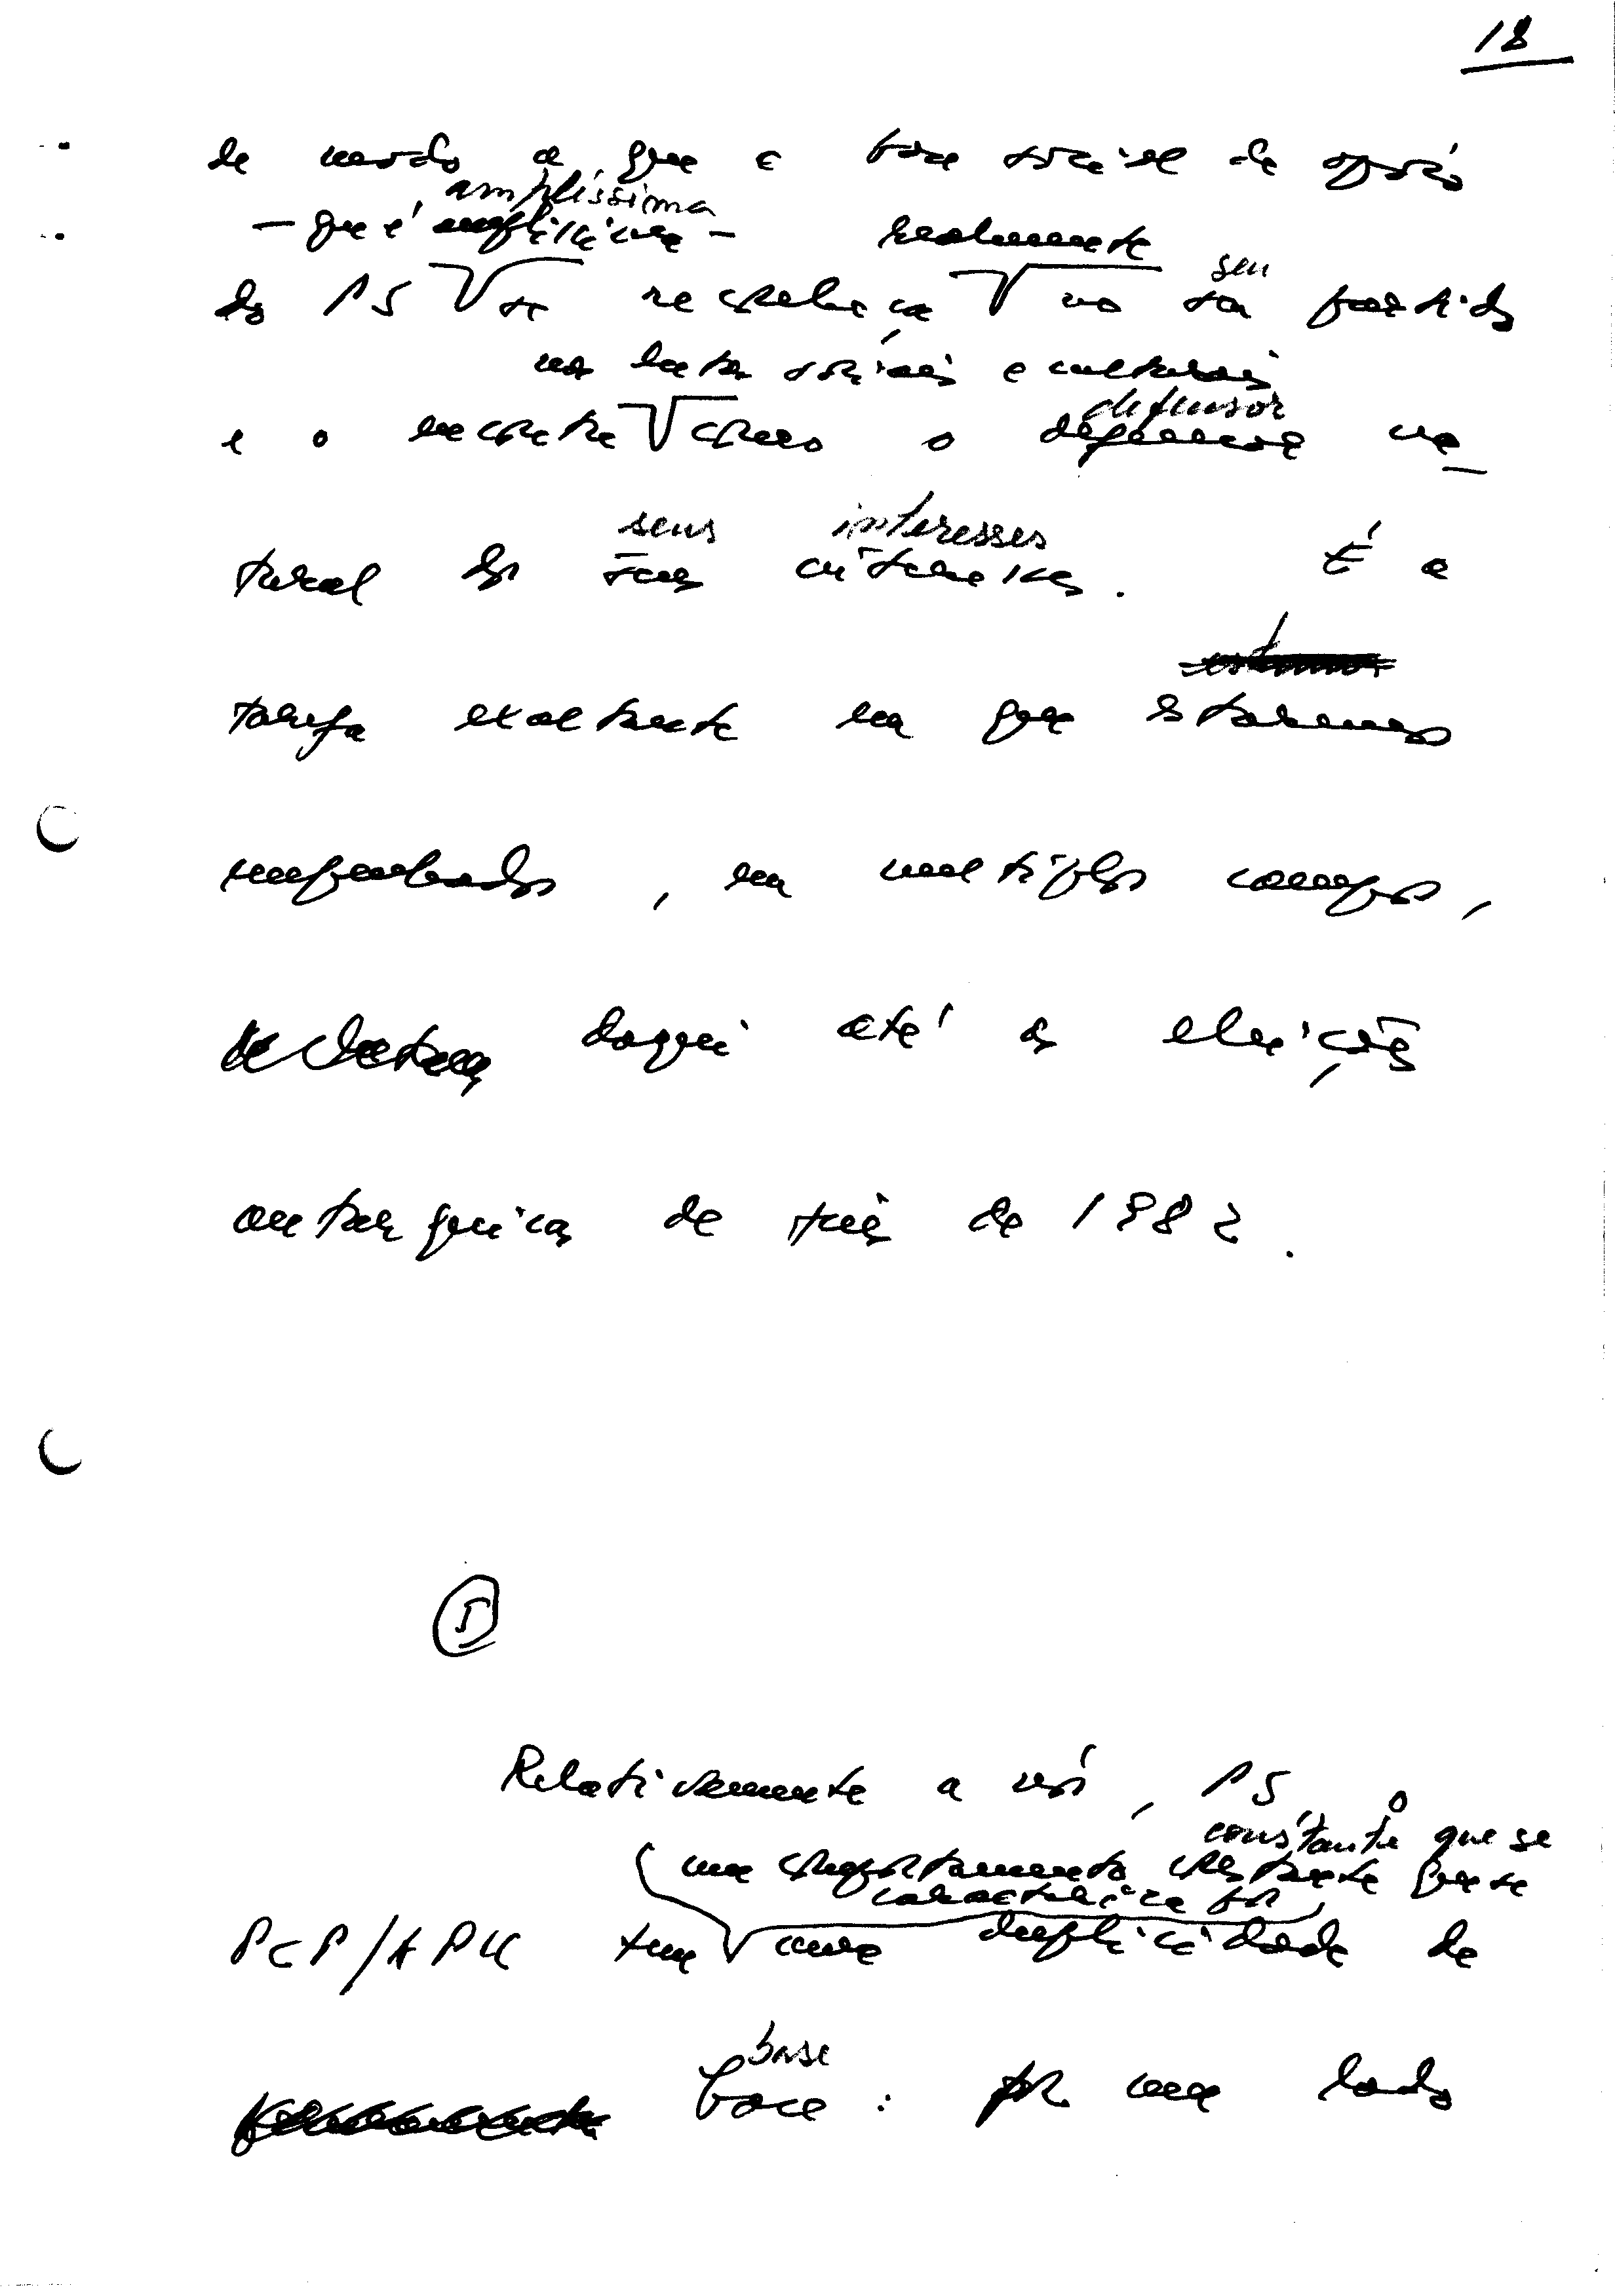 18
de modo a que a base social de apoio
amplíssima
— que é amplíssima — realmente
do PS se reconheça no seu partido
seu
nas lutas sociais e culturais
defensor
e o encontre como o defensor na-
seus interesses
tural dos seus interesses. É a
tarefa exaltante em que estaremos
empenhados, em múltiplos campos,
daqui até às eleições
autárquicas de fins de 1982.
5
Relativamente a nós, PS, o
constante que se
um comportamento constante que se
caracteriza por
PCP/APU tem uma duplicidade de
base
base: por um lado